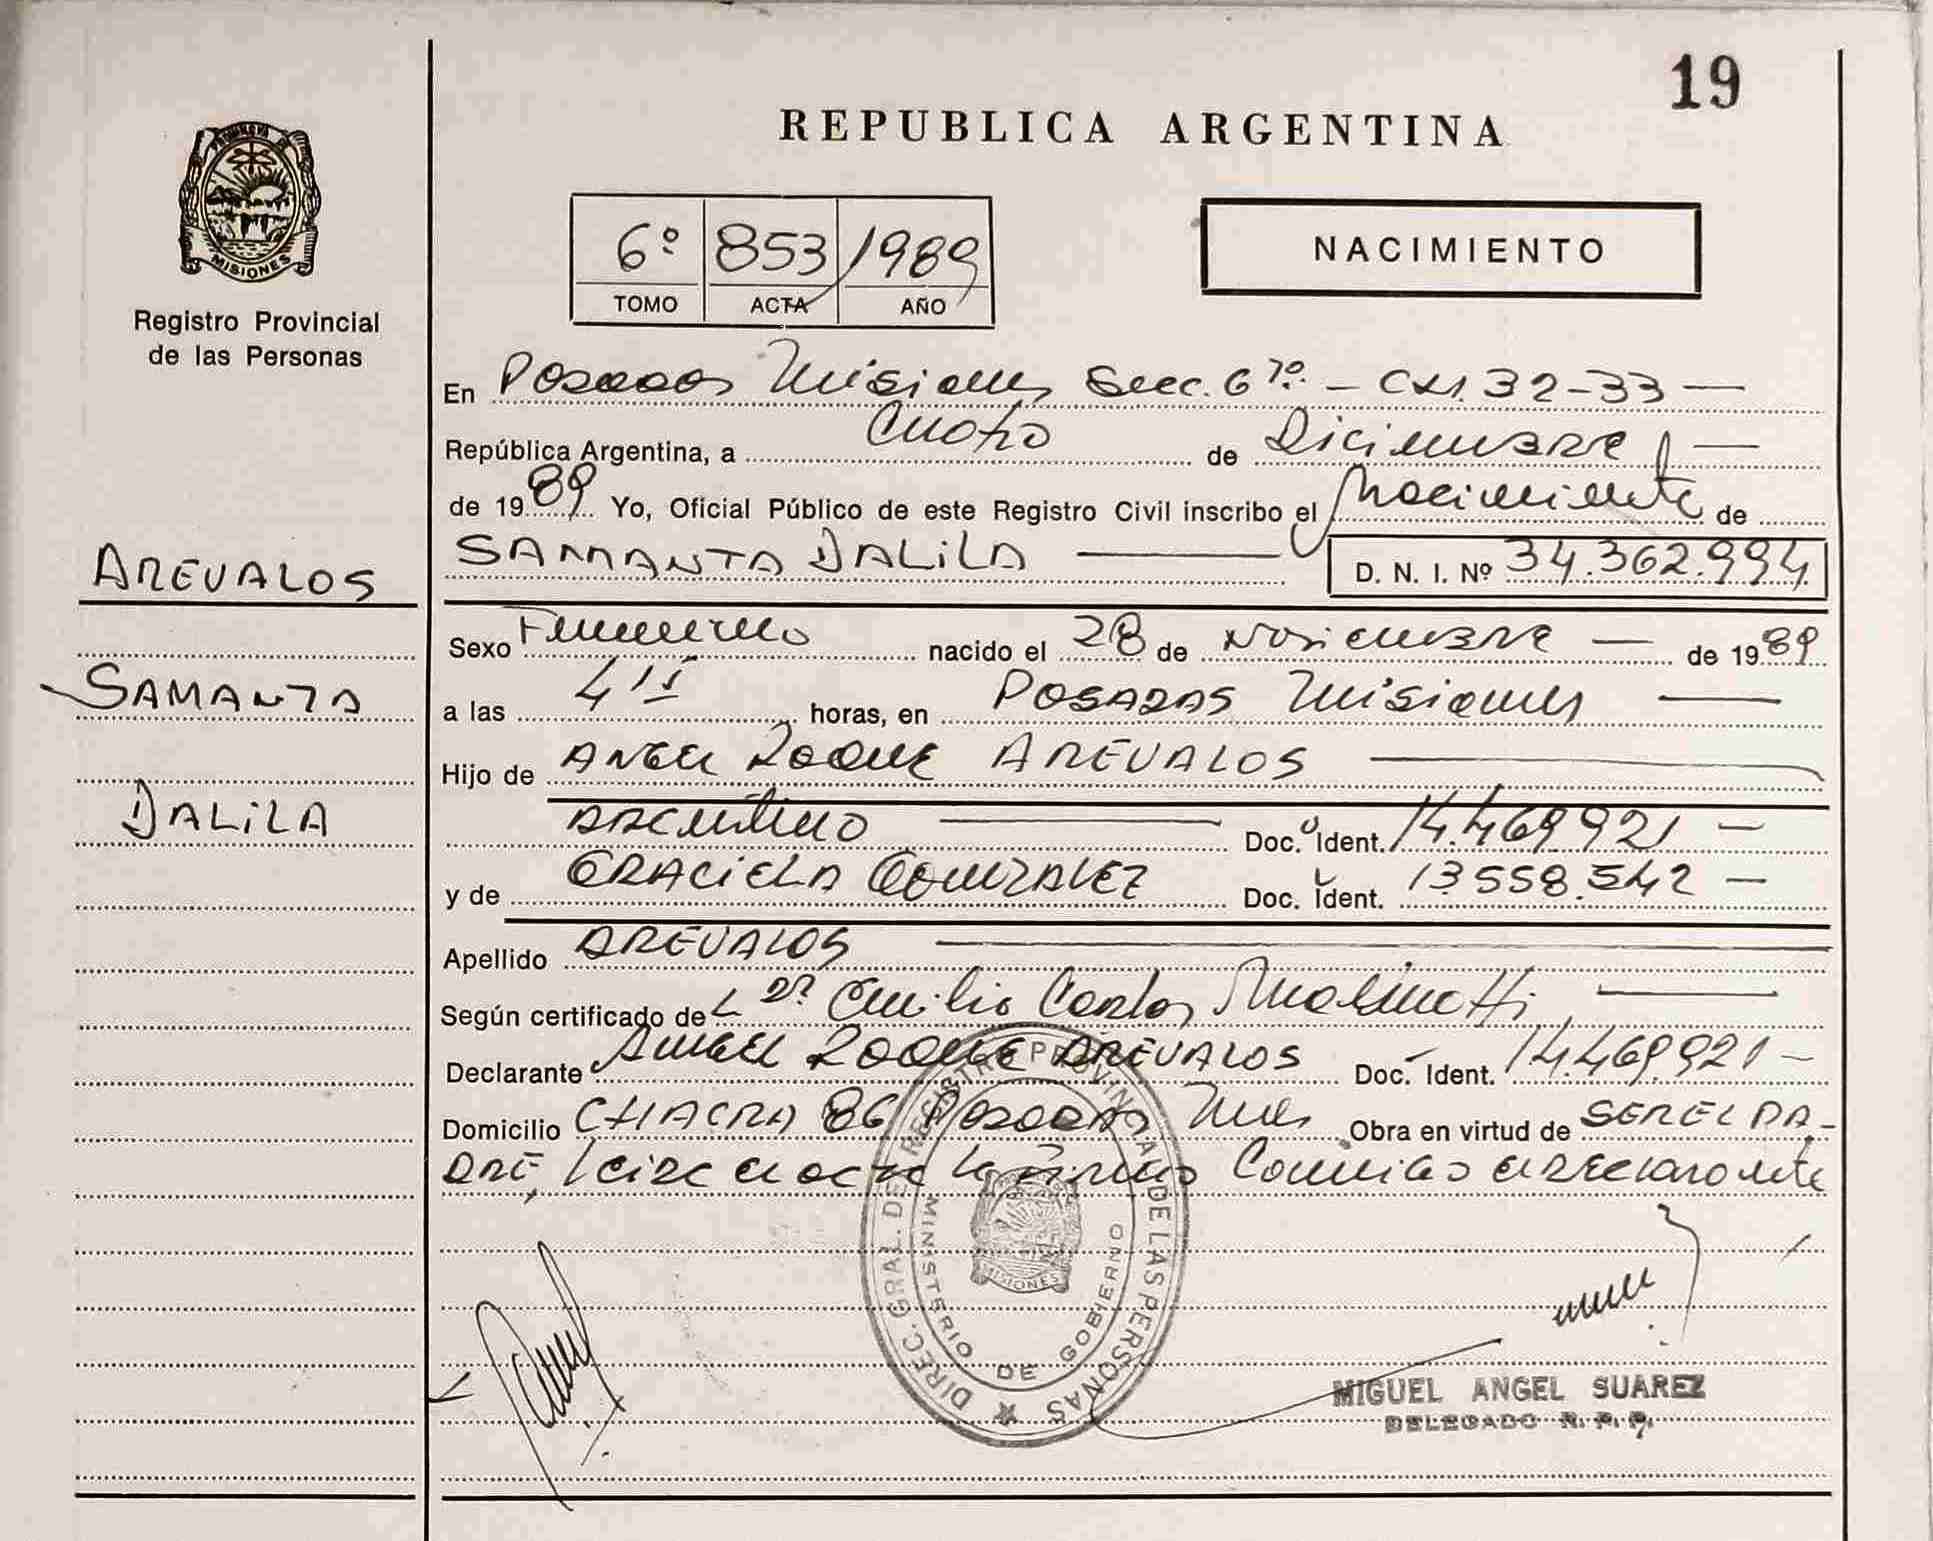 19
REPUBLICA ARGENTINA
MISIONES
Registro Provincial
de las Personas
6º 853 1989
TOMO ACTA AÑO
NACIMIENTO
En Posadas Misiones Secc. 6 – 32-33 —
República Argentina, a Cuatro de Diciembre —
de 1989 Yo, Oficial Público de este Registro Civil inscribo el Nacimiento de
SAMANTA DALILA — D. N. I. Nº 34.362.994
AREVALOS
SAMANTA
DALILA
Sexo Femenino nacido el 28 de Noviembre — de 1989
a las 4 horas, en POSADAS Misiones —
Hijo de ANGEL ROQUE AREVALOS —
ARGENTINO — Doc. Ident. 14.469.921 —
y de GRACIELA GONZALEZ Doc. Ident. 13.558.542 —
Apellido AREVALOS —
Según certificado de Emilio Carlos —
Declarante ANGEL ROQUE AREVALOS Doc. Ident. 14.469.921 –
Domicilio CHACRA 86 Posadas Mnes Obra en virtud de SER EL PA-
DRE, leida el acta la firma Conmigo el declarante
DIREC. GRAL. DEL REGISTRO PROVINCIAL DE LAS PERSONAS
MINISTERIO DE GOBIERNO
MISIONES
MIGUEL ANGEL SUAREZ
DELEGADO R. P. P.